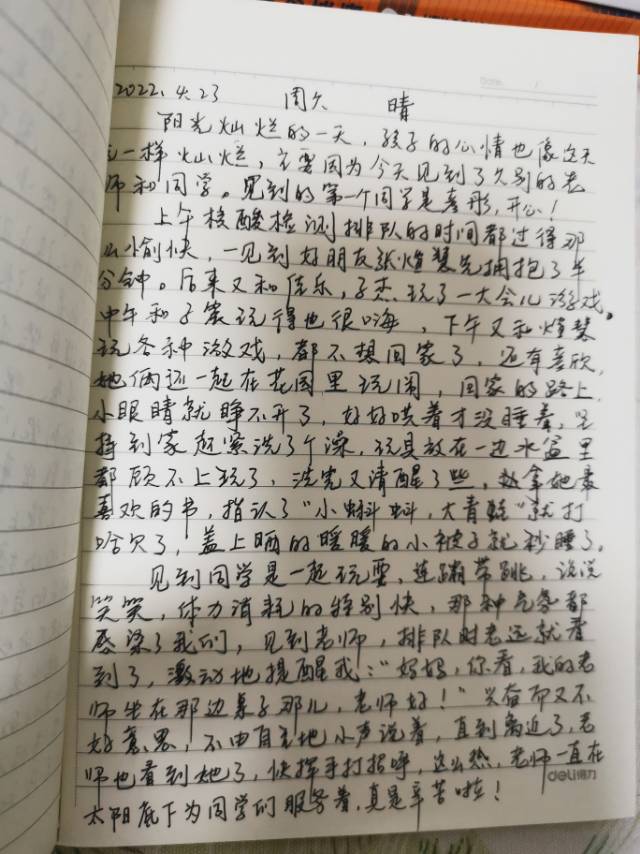 Date: /
2022.4.23 周六 晴
阳光灿烂的一天，孩子的心情也像这天
气一样灿烂，主要因为今天见到了久别的老
师和同学。见到的第一个同学是喜彤，开心！
上午核酸检测排队的时间都过得那
么愉快，一见到好朋友张煊慧先拥抱了半
分钟。后来又和佳乐，子杰玩了一大会儿游戏。
中午和子宸玩得也很嗨，下午又和煊慧
玩各种游戏，都不想回家了，还有喜欣，
她俩还一起在花园里玩闹，回家的路上，
小眼睛就睁不开了，好好哄着才没睡着，坚
持到家赶紧洗了个澡，玩具放在一边水盆里
都顾不上玩了，洗完又清醒了些，赶拿她最
喜欢的书，指认了"小蝌蚪，大青蛙"就打
哈欠了，盖上晒的暖暖的小被子就秒睡了。
见到同学是一起玩耍，连蹦带跳，说说
笑笑，体力消耗的特别快，那种气氛都
感染了我们，见到老师，排队时老远就看
到了，激动地提醒我："妈妈，你看，我的老
师坐在那边桌子那儿，老师好！"兴奋而又不
好意思，不由自主地小声说着，直到离近了，老
师也看到她了，快挥手打招呼，这么热，老师一直在
太阳底下为同学们服务着，真是辛苦啦！
deli得力